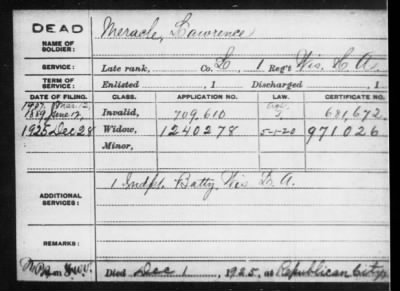 DEAD
NAME OF SOLDIER: Meracle, Lawrence
SERVICE: Late rank, Co. L, 1 Reg't Wis. H. A.
TERM OF SERVICE: Enlisted , 1 Discharged , 1
DATE OF FILING. CLASS. APPLICATION NO. LAW. CERTIFICATE NO.
1907. Mar. 12,
1889 June 12, Invalid, 709,610 681,672
1925 Dec 28 Widow, 1240278 5-1-20 971026
Minor,
ADDITIONAL SERVICES: 1 Indpt. Batty, Wis L. A.
REMARKS:
Died Dec 1, 1925, at Republican City,